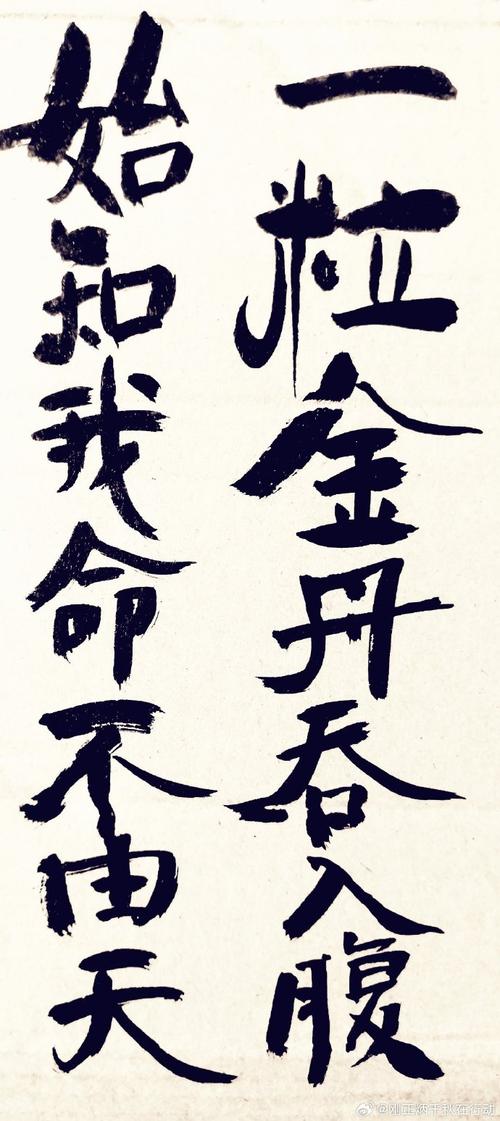 一粒金丹吞入腹
始知我命不由天
@刚正炳千秋在行动